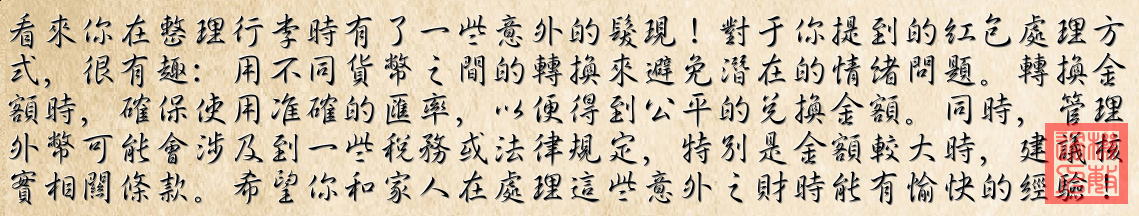 看來你在整理行李時有了一些意外的髮現！對于你提到的紅包處理方
式，很有趣：用不同貨幣之間的轉換來避免潛在的情緒問題。轉換金
額時，確保使用准確的匯率，以便得到公平的兌換金額。同時，管理
外幣可能會涉及到一些稅務或法律規定，特別是金額較大時，建議核
實相關條款。希望你和家人在處理這些意外之財時能有愉快的經驗！